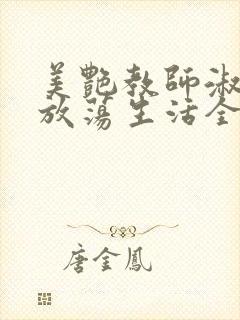 美艷教師淑
放蕩生活全
唐金鳳